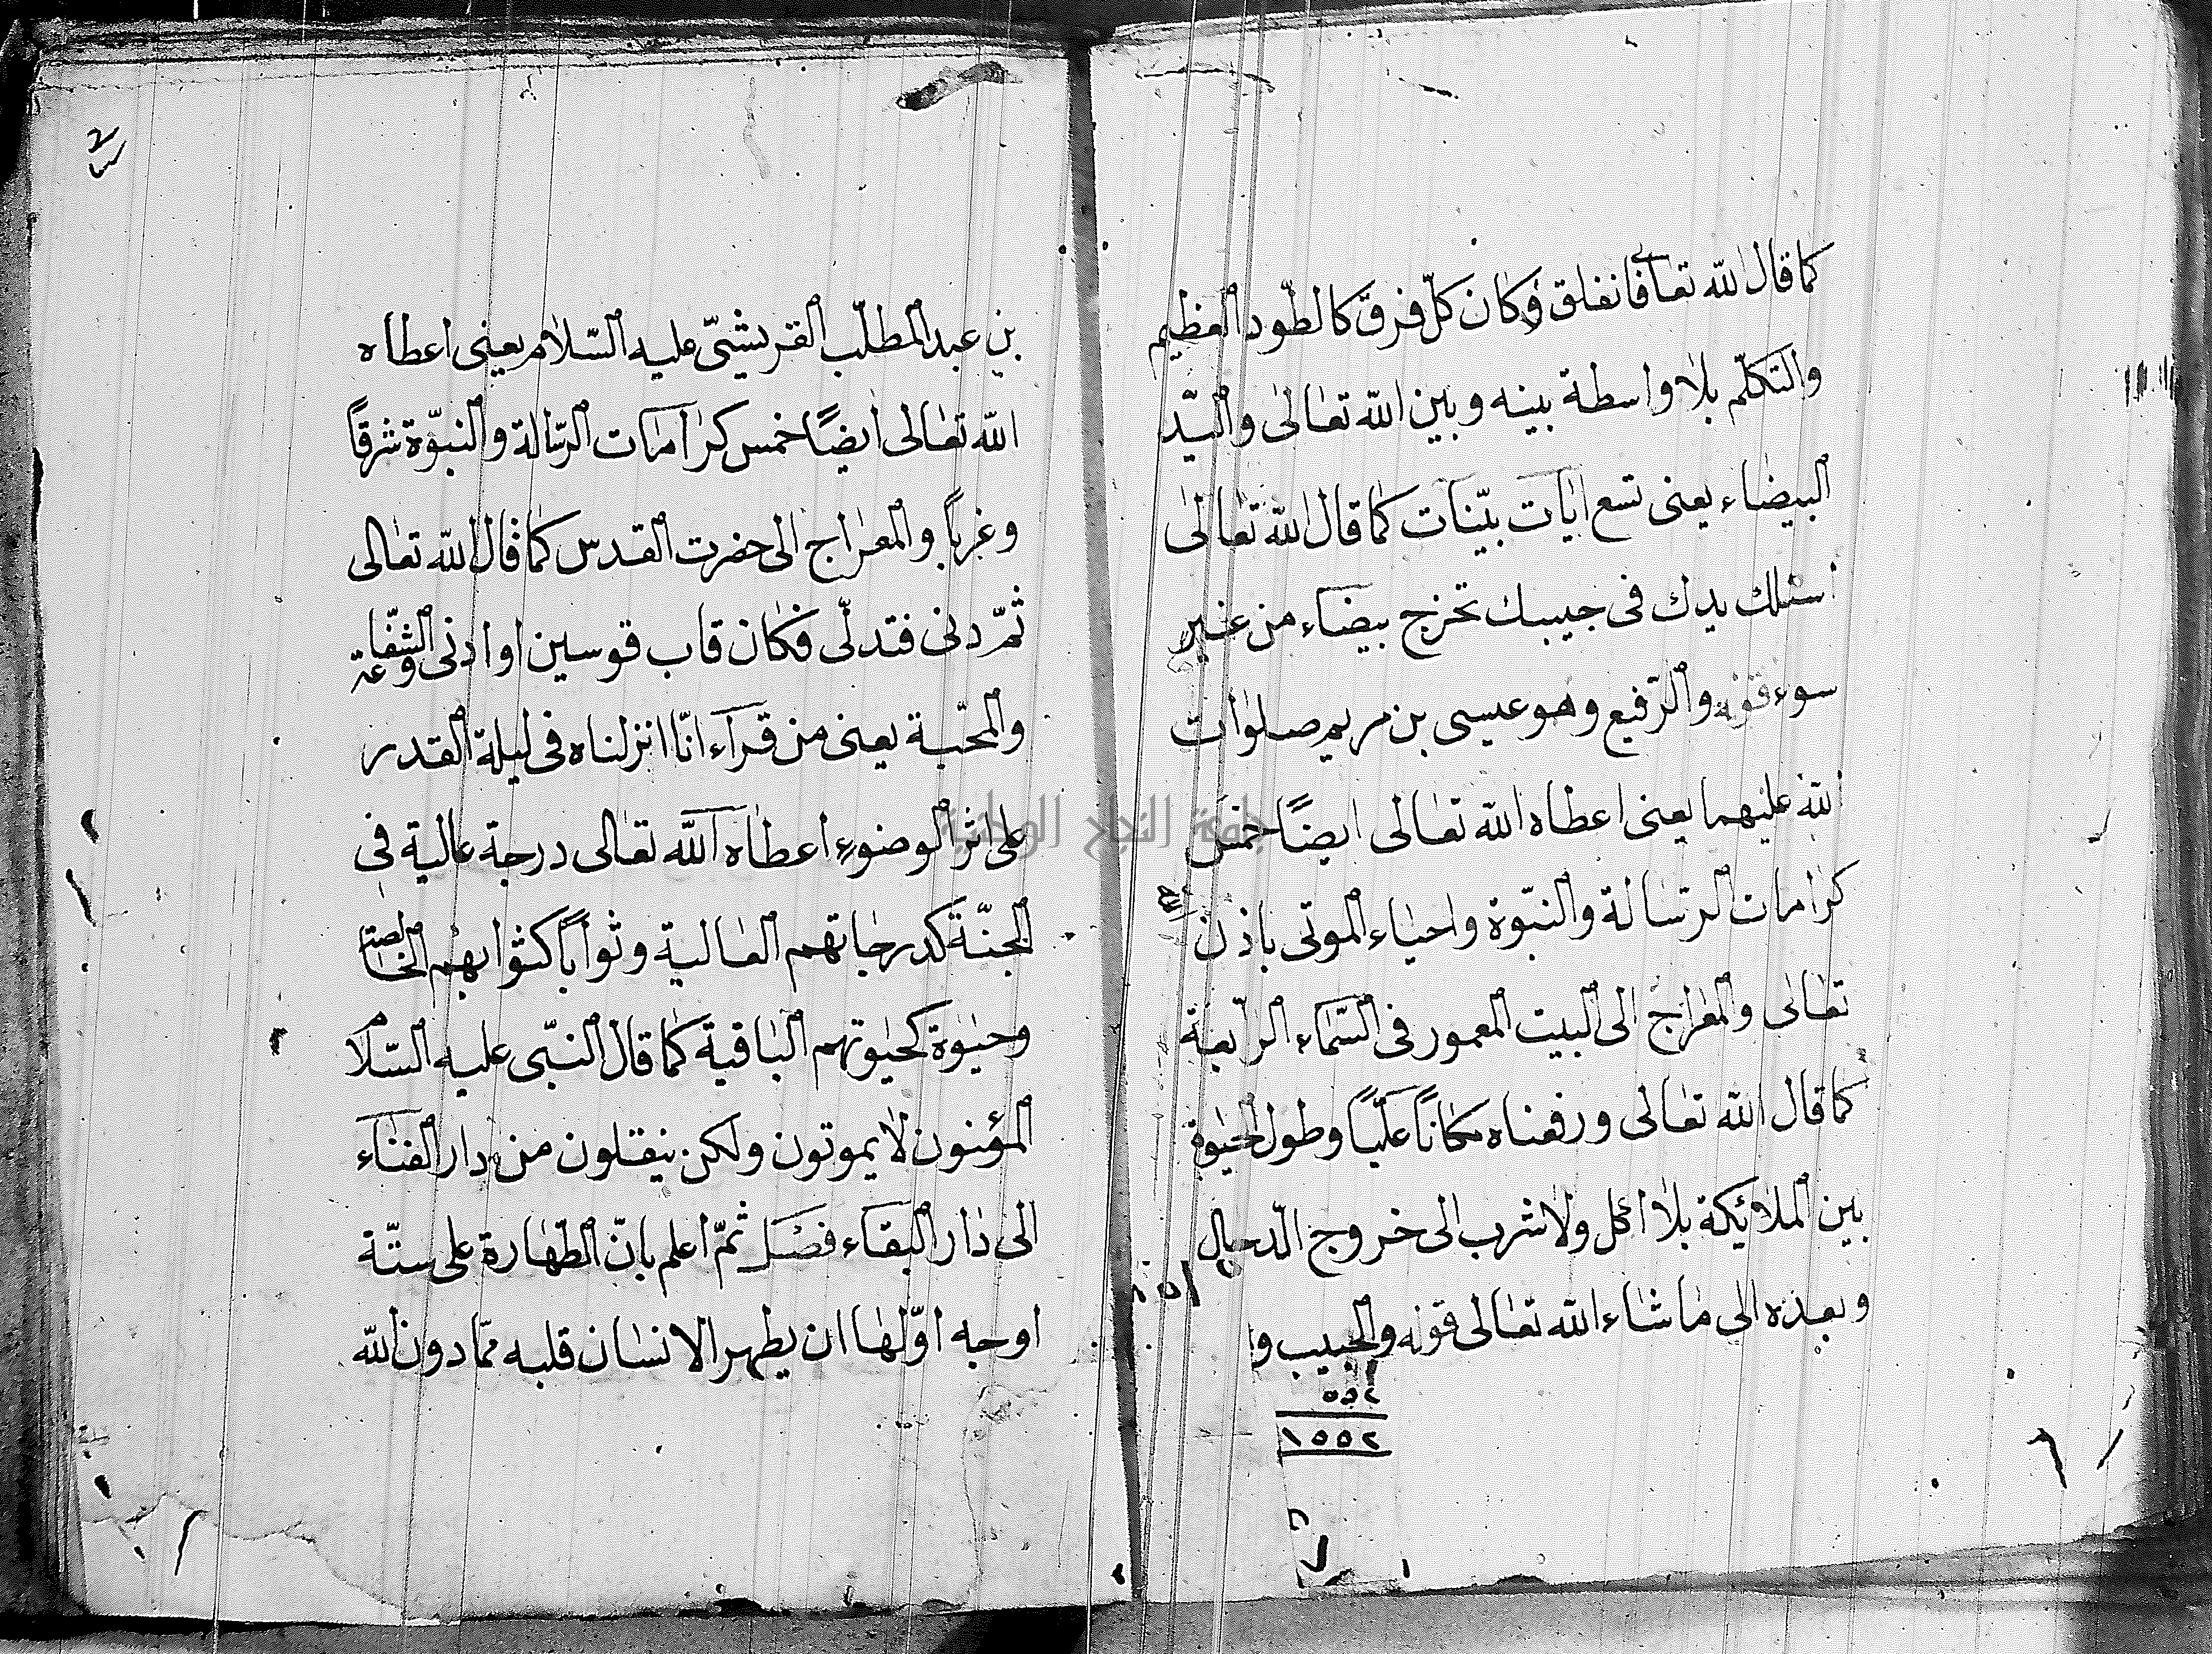 كما قال الله تعالى فانفلق وكان كلّ فرق كالطّود العظيم
والتكلّم بلا واسطة بينه وبين الله تعالى واليد
البيضاء يعنى تسع ايات بيّنات كما قال الله تعالى
اسلك يدك فى جيبك تخرج بيضاء من غير
سوء قوله والرّفيع وهو عيسى بن مريم صلوات
الله عليهما يعنى اعطاه الله تعالى ايضًا خمس
كرامات الرّسالة والنبّوة واحياء الموتى باذن
تعالى والمعراج الى البيت المعمور فى السّماء الرّابعة
كما قال الله تعالى ورفعناه مكانًا عليًّا وطول الحيوة
بين الملائكة بلا اكل ولا شرب الى خروج الدّجال
وبعده الى ما شاء الله تعالى قوله والحبيب و
٥٥٢
١٥٥٢
بن عبد المطلّب القريشىّ عليه السّلام يعنى اعطاه
الله تعالى ايضًا خمس كرامات الرّسالة والنبوّة شرقًا
وغربًا والمعراج الى حضرت القدس كما قال الله تعالى
ثمّ دنى فتدلّى فكان قاب قوسين او ادنى والشّفاعة
والمحبّة يعنى من قرآء انّا انزلناه فى ليلة القدر
على اثر الوضوء اعطاه الله تعالى درجة عالية فى
الجنّة كدرجاتهم العالية وثوابًا كثوابهم الخالصة
وحيوة كحيوتهم الباقية كما قال النبّى عليه السّلام
المؤمنون لا يموتون ولكن ينقلون من دار الفناء
الى دار البقاء فصل ثمّ اعلم بانّ الطّهارة على ستّة
اوجه اوّلها ان يطهر الانسان قلبه ممّا دون الله
جامعة النجاح الوطنية